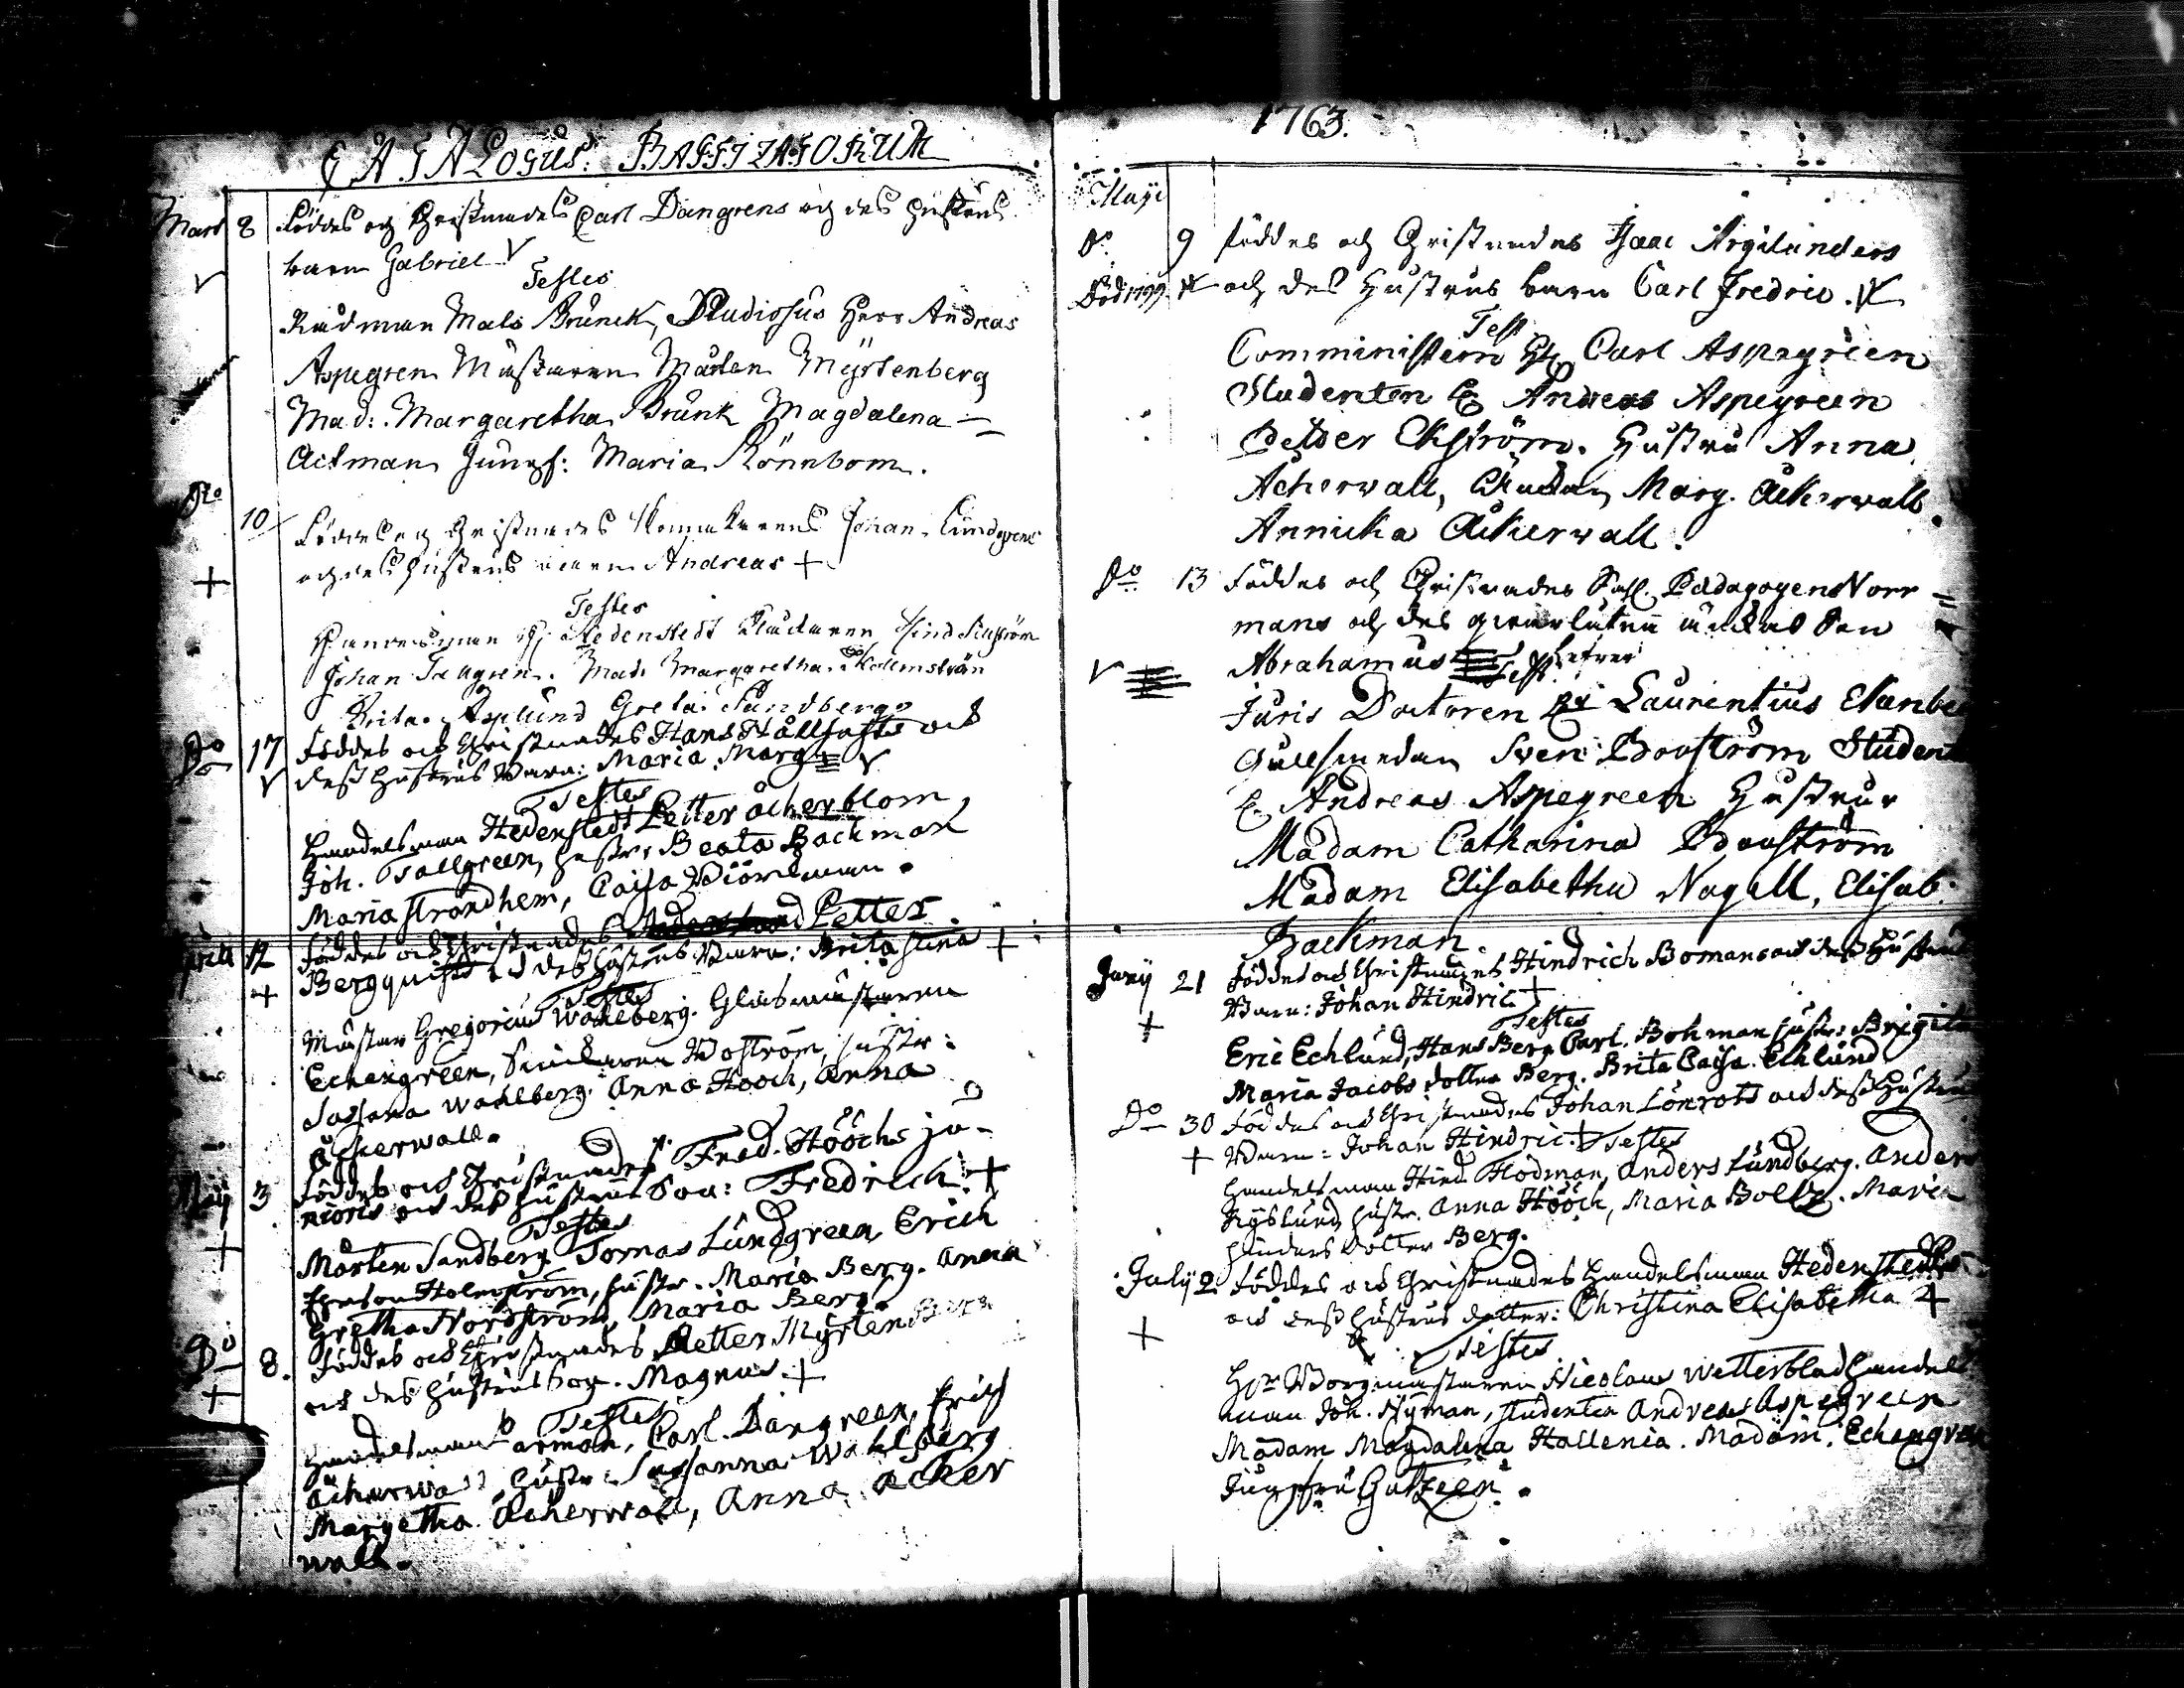 CATALOGUS BAPTIZATORUM
Mart 8 Föddes och Christnades Carl Dangrens och des hustrus
barn Gabriel
Testes
Rådman Mats Brunck, Studiosus Herr Andreas
Aspegren Mästaren Mårten Myrtenberg
Mad: Margaretha Brunk Magdalena
Ackman Jungf: Maria Rönnbom.
Do 10 Föddes och Christnades Johan Lundgrens
och des hustrus barn Andreas +
Testes
Hedenstedt Hind
Johan Tallgren. Mad. Margaretha Holmström
Brita Asplund Greta Sandberg
Do 17 Föddes och Christnades Hans Hållfasts och
dess hustrus Barn: Maria Marg
Testes
Handelsman Hedenstedt Petter Åckerblom
Joh. Tallgreen, hustr: Beata Backman
Maria Strandhem, Caisa Biörkman.
April 12 Föddes och Christnades Petter
Bergquists och des hustrus Barn: Brita Stina +
Testes
Mästar Gregorius Wahlberg. Glasmästaren
Echengreen, Boström, hustr:
Sussana Wahlberg. Anna Höök, Anna
Åckerwall.
Maij 3 Föddes och Christnades Fred. Hööchs ju-
nioris och des hustrus Son: Fredrich +
Testes
Mårten Sandberg Tomas Lundgreen, Erich
Holmström, hustr. Maria Berg. Anna
Gretha Nordström, Maria Berg.
Do 8. Föddes och Christnades Petter Myrtenbergs
och des hustrus Son. Magnus. +
Testes
Handelsman Carl Dangreen, Erich
Åckerwall, hustr: Sussanna Wahlberg
Margetha Åckerwall, Anna Åcker
wall.
1763.
Maji
Do 9 föddes och Christnades Isaac Argilanders
Död 1799 och des Hustrus barn Carl Fredric.
Test
Comministern H Carl Aspegreen
Studenten H Andreas Aspegreen
Petter Ekström. Hustru Anna
Åckerwall, Madam Marg. Åckerwall
Annicka Åckerwall.
Do 13 Föddes och Christnades Sal. Pædagogen Norr=
mans och des Son
Abrahamus
Juris Doctoren H Laurentius
Gullsmeden Sven Boström Student
H. Andreas Aspegreen Hustrur
Madam Catharina Boström
Madam Elisabetha Nagell, Elisab.
Backman.
Junij 21 Föddes och Christnades Hindrich Bomans och dess Hustrus
Barn: Johan Hindric +
Testes
Eric Echlund, Hans Berg Carl. Bohman hustr: Brigita
Maria Jacobs dotter Berg. Brita Caisa Echlund
Do 30 Föddes och Christnades Johan Lönrots och dess Hustrus
+ Barn: Johan Hindric. + Testes
Handelsman Hind Flodman, Anders Lundberg. Anders
Nyslund hustr. Anna Hööck, Maria Boltz. Maria
dotter Berg.
Julij 2 Föddes och Christnades Handelsman Hedenstedts
och dess hustrus dotter: Christina Elisabetha +
Testes
Hr Borgmästaren Nicolaus Wetterblad handels
man Joh. Nyman, Studenten Andreas Aspegreen
Madam Magdalena Hallenia. Madam. Echengreen
Jungfru